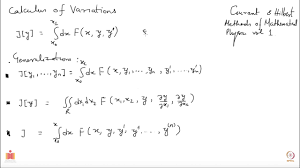 Calculus of Variations
Courant & Hilbert
Methods of Mathematical
Physics vol 1
J[y] = ∫_{x₀}^{x₁} dx F(x, y, y')
Generalizations:
• J[y₁, ...., yₙ] = ∫_{x₀}^{x₁} dx F(x, y₁, ... yₙ, y₁', ... yₙ')
• J[y] = ∬_R dx₁dx₂ F(x₁, x₂, y, ∂y/∂x₁, ∂y/∂x₂)
• J = ∫_{x₀}^{x₁} dx F(x, y, y', y'', ..., y^{(n)})